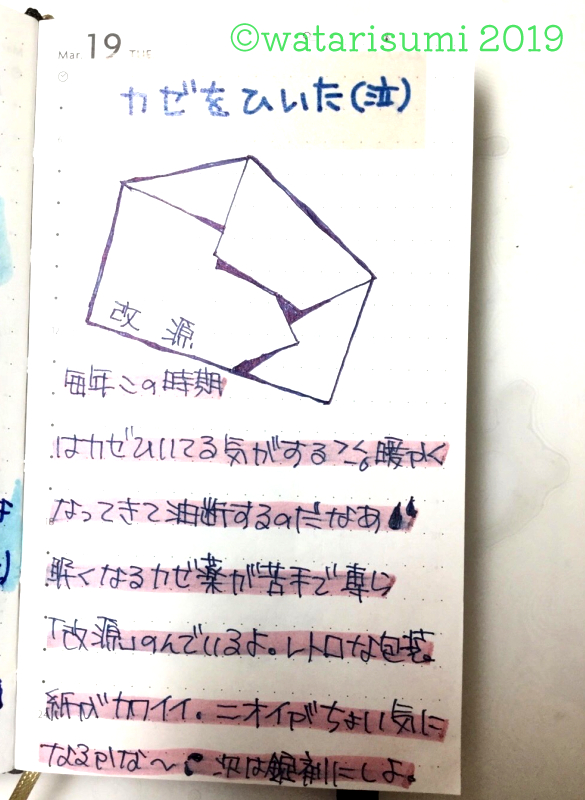 ©watarisumi 2019
Mar. 19 TUE
カゼをひいた(泣)
改源
毎年この時期
はカゼひいてる気がする〜。暖かく
なってきて油断するのだなあ
眠くなるカゼ薬が苦手で専ら
「改源」のんでいるよ。レトロな包装
紙がカワイイ。ニオイがちょい気に
なるかな〜 次は錠剤にしよ。